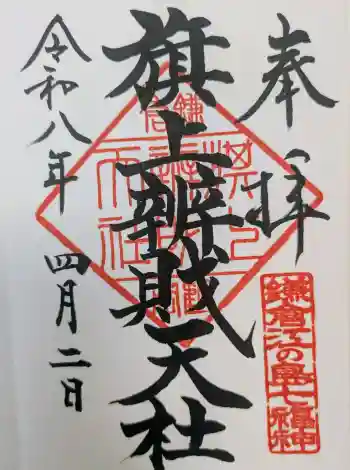 奉拝
旗上辨財天社
令和八年 四月二日
鎌倉江の島七福神